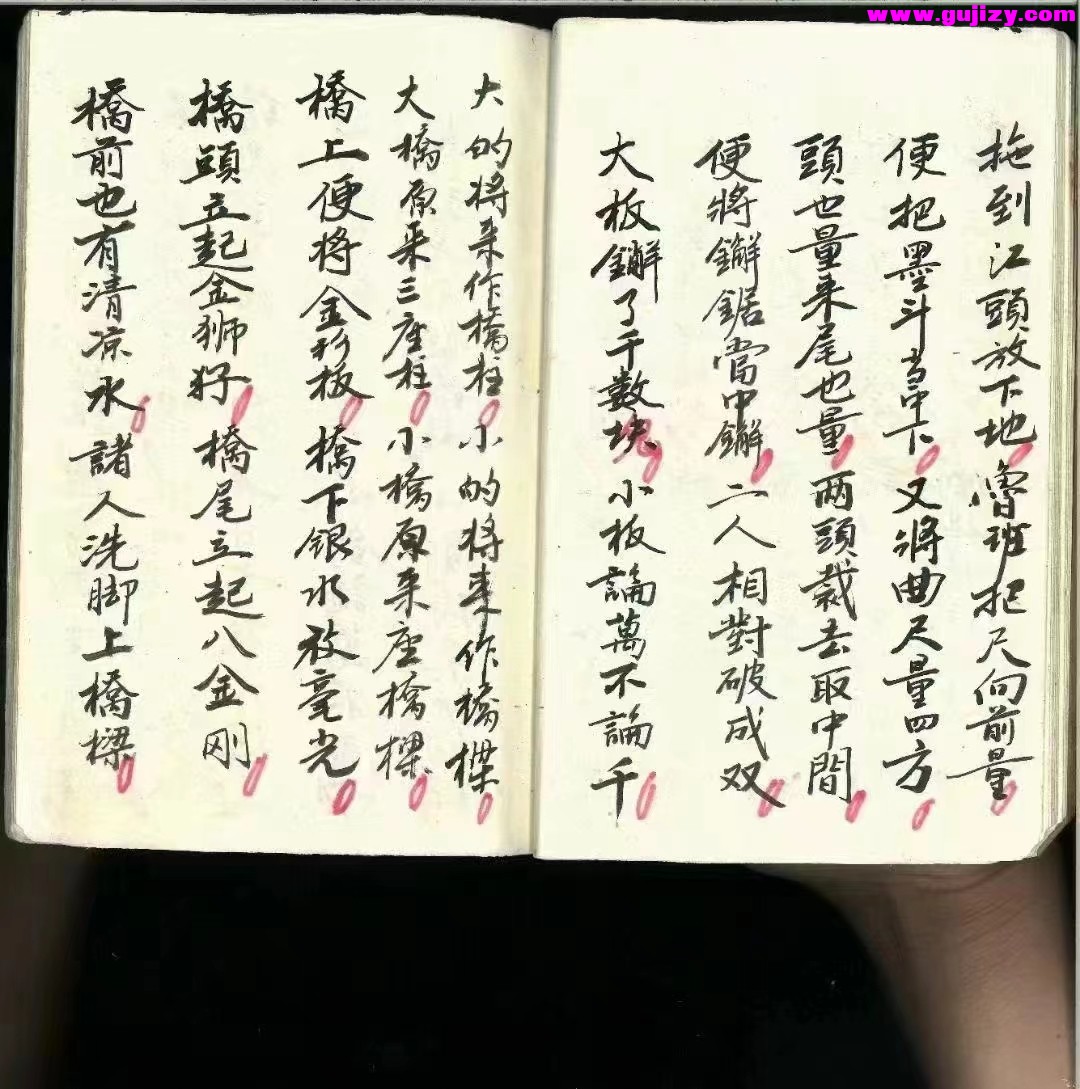 www.gujizy.com
拖到江頭放下地魯班把尺向前量
便把墨斗当中下又將曲尺量四方
頭也量来尾也量两頭裁去取中間
便將鎅鋸當中鎅二人相對破成双
大板鎅了千數塊小板論萬不論千
大的将来作橋柱小的将来作橋樑
大橋原来三座柱小橋原来座橋樑
橋上便将金形板橋下银水放毫光
橋頭立起金狮孖橋尾立起八金刚
橋前也有清凉水諸人洗脚上橋樑